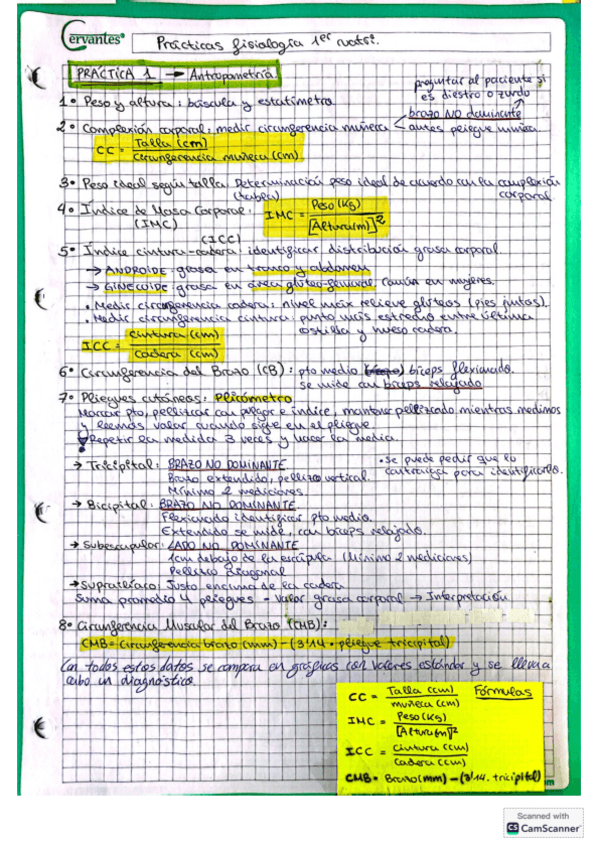 Cervantes®
Prácticas fisiología 1er cuatri.
PRÁCTICA 1 → Antropometría
preguntar al paciente si
es diestro o zurdo
1º Peso y altura: báscula y estatímetro
brazo NO dominante
2º Complexión corporal: medir circunferencia muñeca
antes pliegue muñeca.
CC = Talla (cm)
Circunferencia muñeca (cm)
3º Peso ideal según talla Determinación peso ideal de acuerdo con la complexión
(tabla) corporal
4º Índice de Masa Corporal: IMC = Peso (Kg)
(IMC) [Altura(m)]²
(ICC)
5º Índice cintura-cadera: identificar distribución grasa corporal.
→ ANDROIDE: grasa en tronco y abdomen
→ GINECOIDE: grasa en área glúteo-femoral. Común en mujeres.
• Medir circunferencia cadera: nivel máx relieve glúteos (pies juntos).
• Medir circunferencia cintura: punto más estrecho entre última
costilla y hueso cadera.
ICC = cintura (cm)
cadera (cm)
6º Circunferencia del Brazo (CB): pto medio bíceps flexionado.
se mide con bíceps relajado
7º Pliegues cutáneos: Plicómetro
Marcar pto, pellizcar con pulgar e índice, mantener pellizcado mientras medimos
y leemos valor cuando sigue en el pliegue.
! Repetir la medida 3 veces y hacer la media.
→ Tricipital: BRAZO NO DOMINANTE
• se puede pedir que lo
contraiga para identificarlo.
Brazo extendido, pellizco vertical.
Mínimo 2 mediciones.
→ Bicipital: BRAZO NO DOMINANTE
Flexionado identificar pto medio.
Extendido se mide, con bíceps relajado.
→ Subescapular: LADO NO DOMINANTE
1cm debajo de la escápula (Mínimo 2 mediciones)
Pellizco Diagonal
→ Suprailíaco: Justo encima de la cadera
Suma promedio 4 pliegues - Valor grasa corporal → Interpretación
8º Circunferencia Muscular del Brazo (CMB):
CMB = Circunferencia brazo (mm) - (3'14 · pliegue tricipital)
Con todos estos datos se compara en gráficas con valores estándar y se lleva a
cabo un diagnóstico.
Fórmulas
CC = Talla (cm)
muñeca (cm)
IMC = Peso (Kg)
[Altura (m)]²
ICC = Cintura (cm)
cadera (cm)
CMB = Brazo (mm) - (3'14 · tricipital)
Scanned with
CS CamScanner